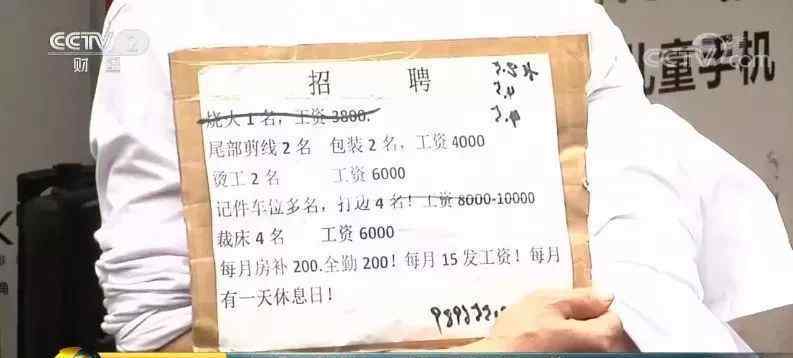 CCTV 2
财经
CCTV
儿童手机
招 聘
烧火1名，工资3800.
尾部剪线2名 包装2名，工资4000
烫工2名 工资6000
记件车位多名，打边4名！工资8000-10000
裁床4名 工资6000
每月房补200.全勤200！每月15发工资！每月
有一天休息日！